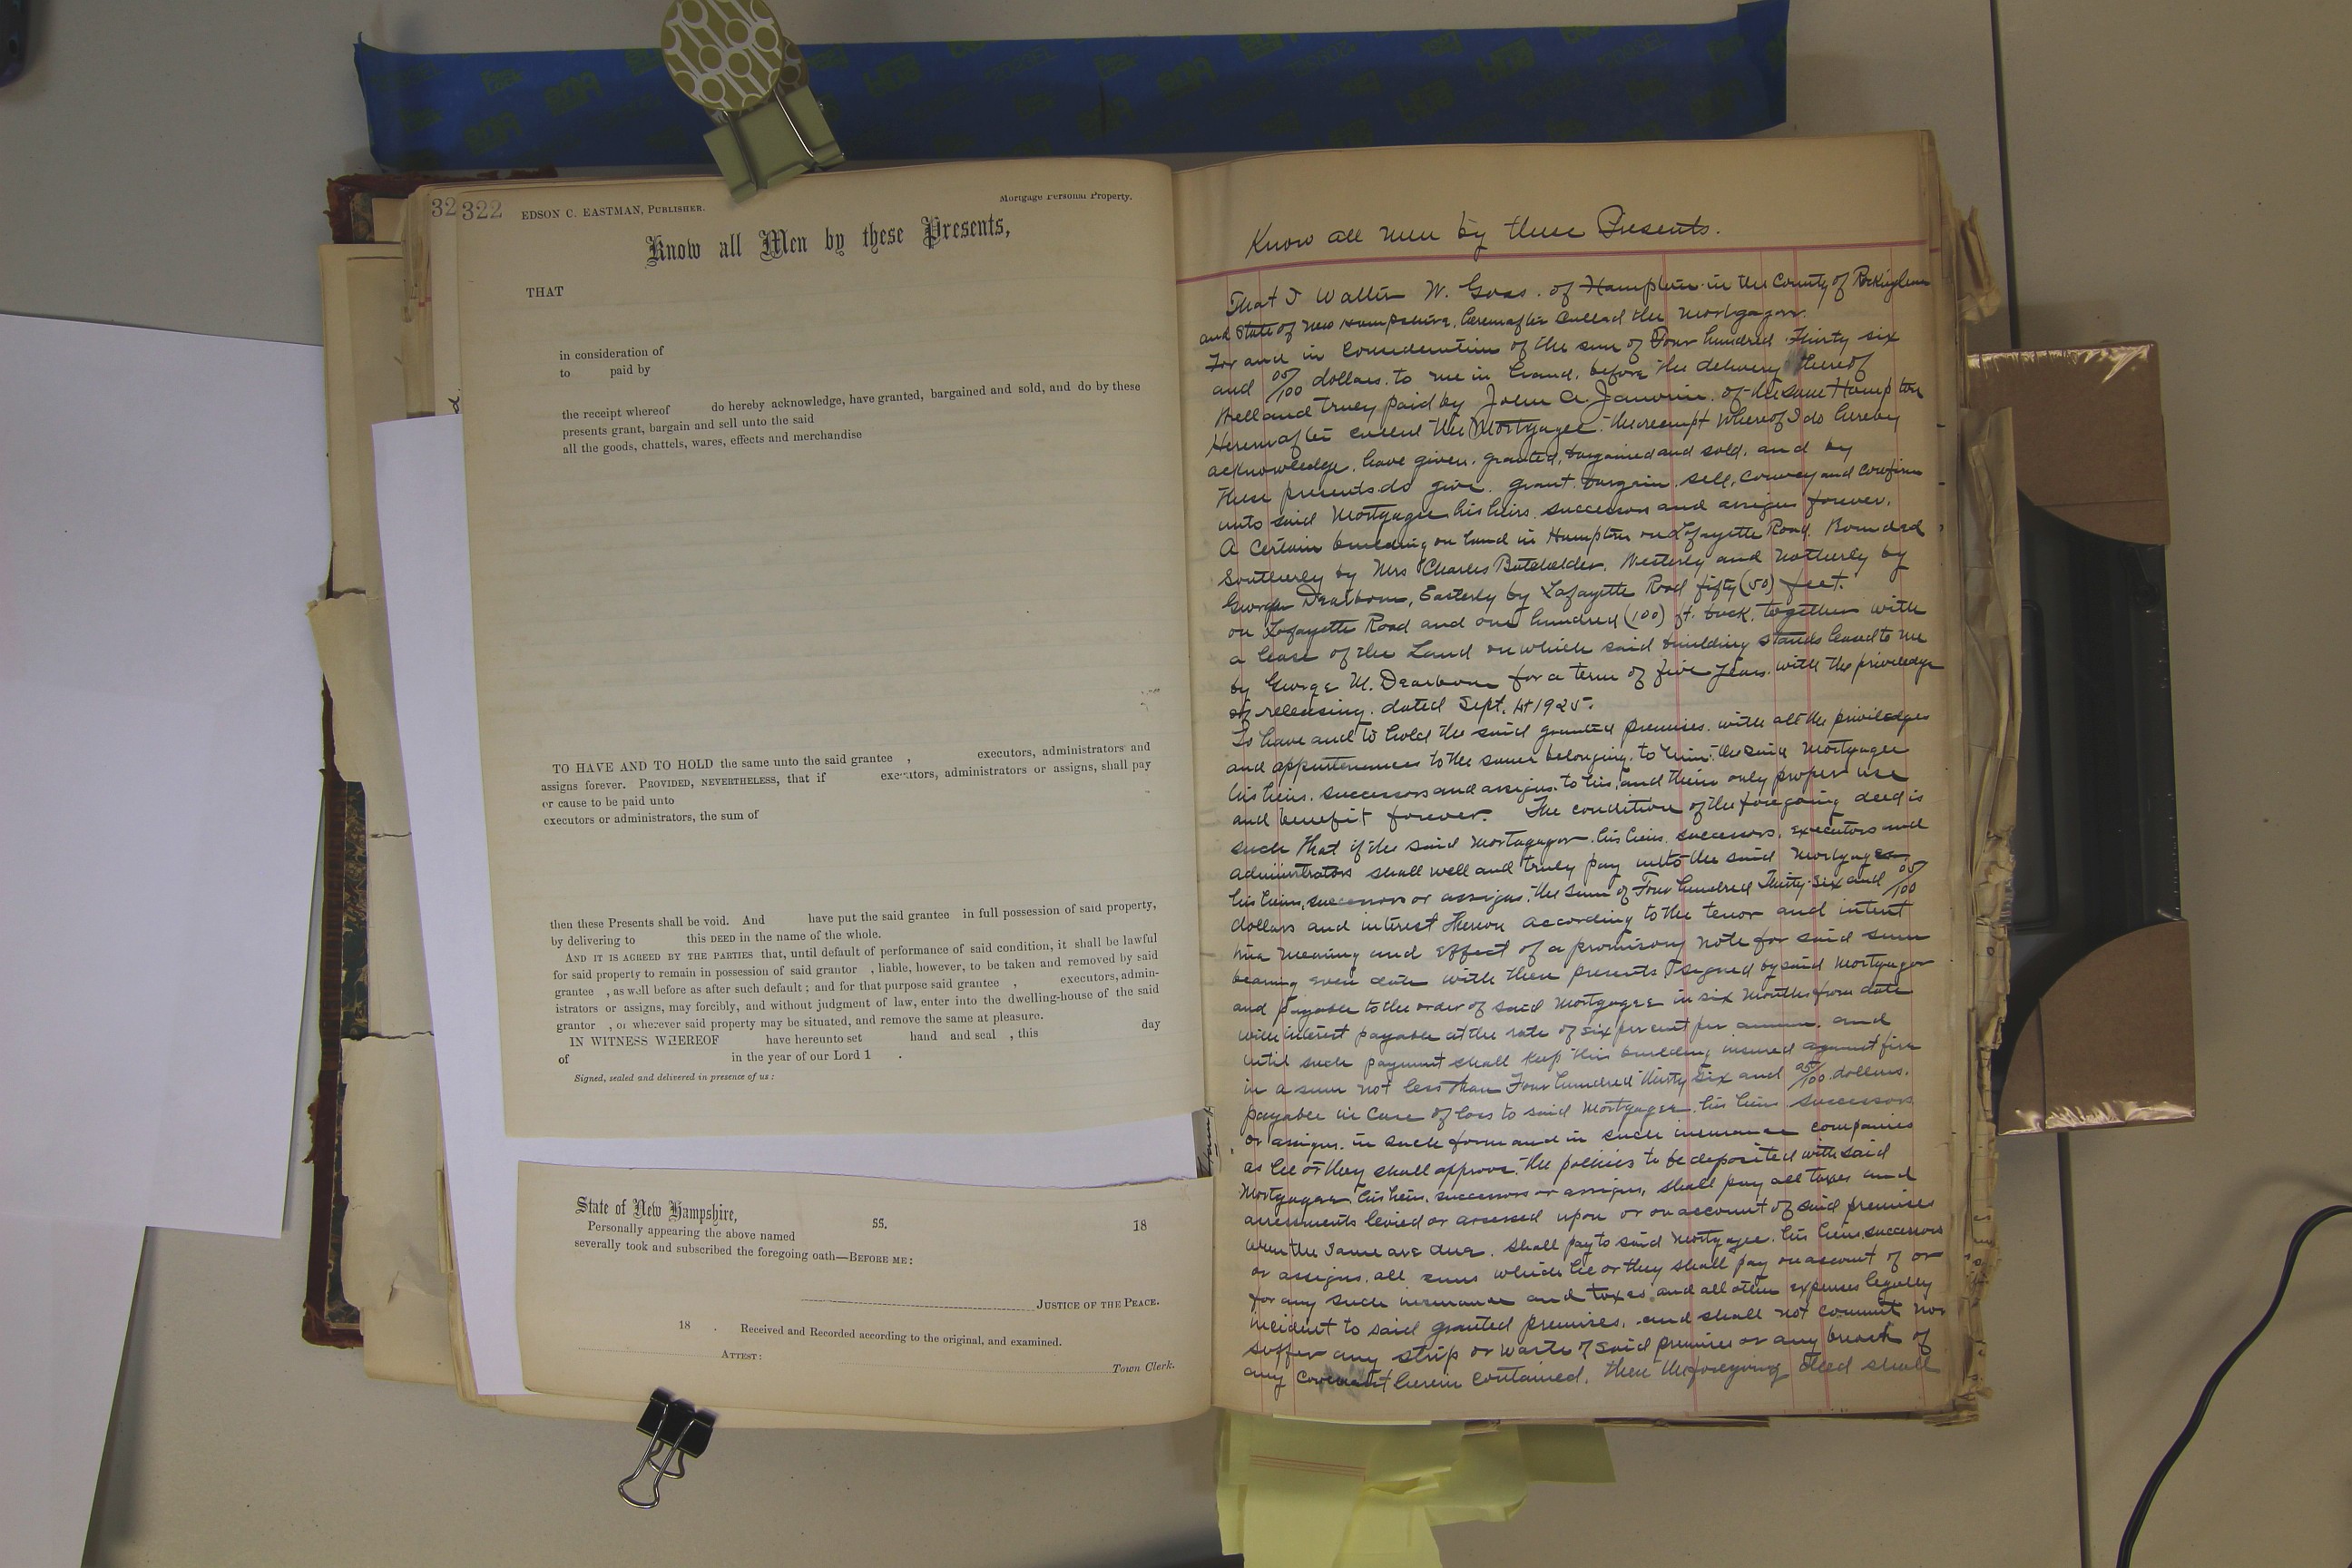 322
EDSON C. EASTMAN, PUBLISHER.
Mortgage Personal Property.
Know all Men by these Presents,
THAT
in consideration of
to paid by
the receipt whereof do hereby acknowledge, have granted, bargained and sold, and do by these
presents grant, bargain and sell unto the said
all the goods, chattels, wares, effects and merchandise
TO HAVE AND TO HOLD the same unto the said grantee , executors, administrators and
assigns forever. PROVIDED, NEVERTHELESS, that if executors, administrators or assigns, shall pay
or cause to be paid unto
executors or administrators, the sum of
then these Presents shall be void. And have put the said grantee in full possession of said property,
by delivering to this DEED in the name of the whole.
AND IT IS AGREED BY THE PARTIES that, until default of performance of said condition, it shall be lawful
for said property to remain in possession of said grantor , liable, however, to be taken and removed by said
grantee , as well before as after such default; and for that purpose said grantee , executors, admin-
istrators or assigns, may forcibly, and without judgment of law, enter into the dwelling-house of the said
grantor , or wherever said property may be situated, and remove the same at pleasure.
IN WITNESS WHEREOF have hereunto set hand and seal , this day
of in the year of our Lord 1 .
Signed, sealed and delivered in presence of us:
State of New Hampshire, ss. 18
Personally appearing the above named
severally took and subscribed the foregoing oath—BEFORE ME:
JUSTICE OF THE PEACE.
18 . Received and Recorded according to the original, and examined.
ATTEST:
Town Clerk.
Know all men by these Presents.
That I Walter W. Goss. of Hampton in the County of Rockingham
and State of New Hampshire, hereinafter called the Mortgagor.
For and in consideration of the sum of Four hundred Thirty six
and /100 dollars. to me in hand, before the delivery thereof
Well and truly paid by John A. Janvrin. of the same Hampton
Hereinafter called the Mortgagee. the receipt Whereof I do hereby
acknowledge, have given, granted, bargained and sold, and by
these presents do give, grant, bargain, sell, convey and confirm
unto said Mortgagee his heirs, successors and assigns forever.
A Certain building on land in Hampton on Lafayette Road. Bounded
Southerly by Mrs Charles Batchelder, Westerly and Notherly by
George Dearborn, Easterly by Lafayette Road fifty (50) feet.
on Lafayette Road and one hundred (100) ft. back, together with
a lease of the Land on which said building stands leased to me
by George M. Dearborn for a term of five years. with the priviledge
of releasing. dated Sept. 1925.
To have and to hold the said granted premises. with all the priviledges
and appurtenances to the same belonging. to him the said Mortgagee
his heirs, successors and assigns. to his, and their only proper use
and benefit forever. The condition of the foregoing deed is
such That if the said Mortgagor his heirs, successors, executors and
administrators shall well and truly pay unto the said Mortgagee
his heirs, successors or assigns, the sum of Four hundred Thirty-Six and /100
dollars and interest thereon according to the tenor and intent
true meaning and effect of a promisory note for said sum
bearing even date with these presents signed by said Mortgagor
and payable to the order of said Mortgagee in six Months from date
with interest payable at the rate of six per cent per annum. and
until such payment shall keep this building insured against fire
in a sum not less than Four hundred thirty Six and /100 dollars.
payable in Case of loss to said Mortgagee. his heirs. successors
or assigns. in such form and in such insurance companies
as he or they shall approve. the policies to be deposited with said
Mortgagee his heirs, successors or assigns, shall pay all taxes and
assessments levied or assessed upon or on account of said premises
when the same are due. shall pay to said Mortgagee. his heirs, successors
or assigns, all sums which he or they shall pay on account of or
for any such insurance and taxes. and all other expenses legally
incident to said granted premises. and shall not commit nor
suffer any strip or waste of said premises or any breach of
any covenant herein contained, then the foregoing deed shall